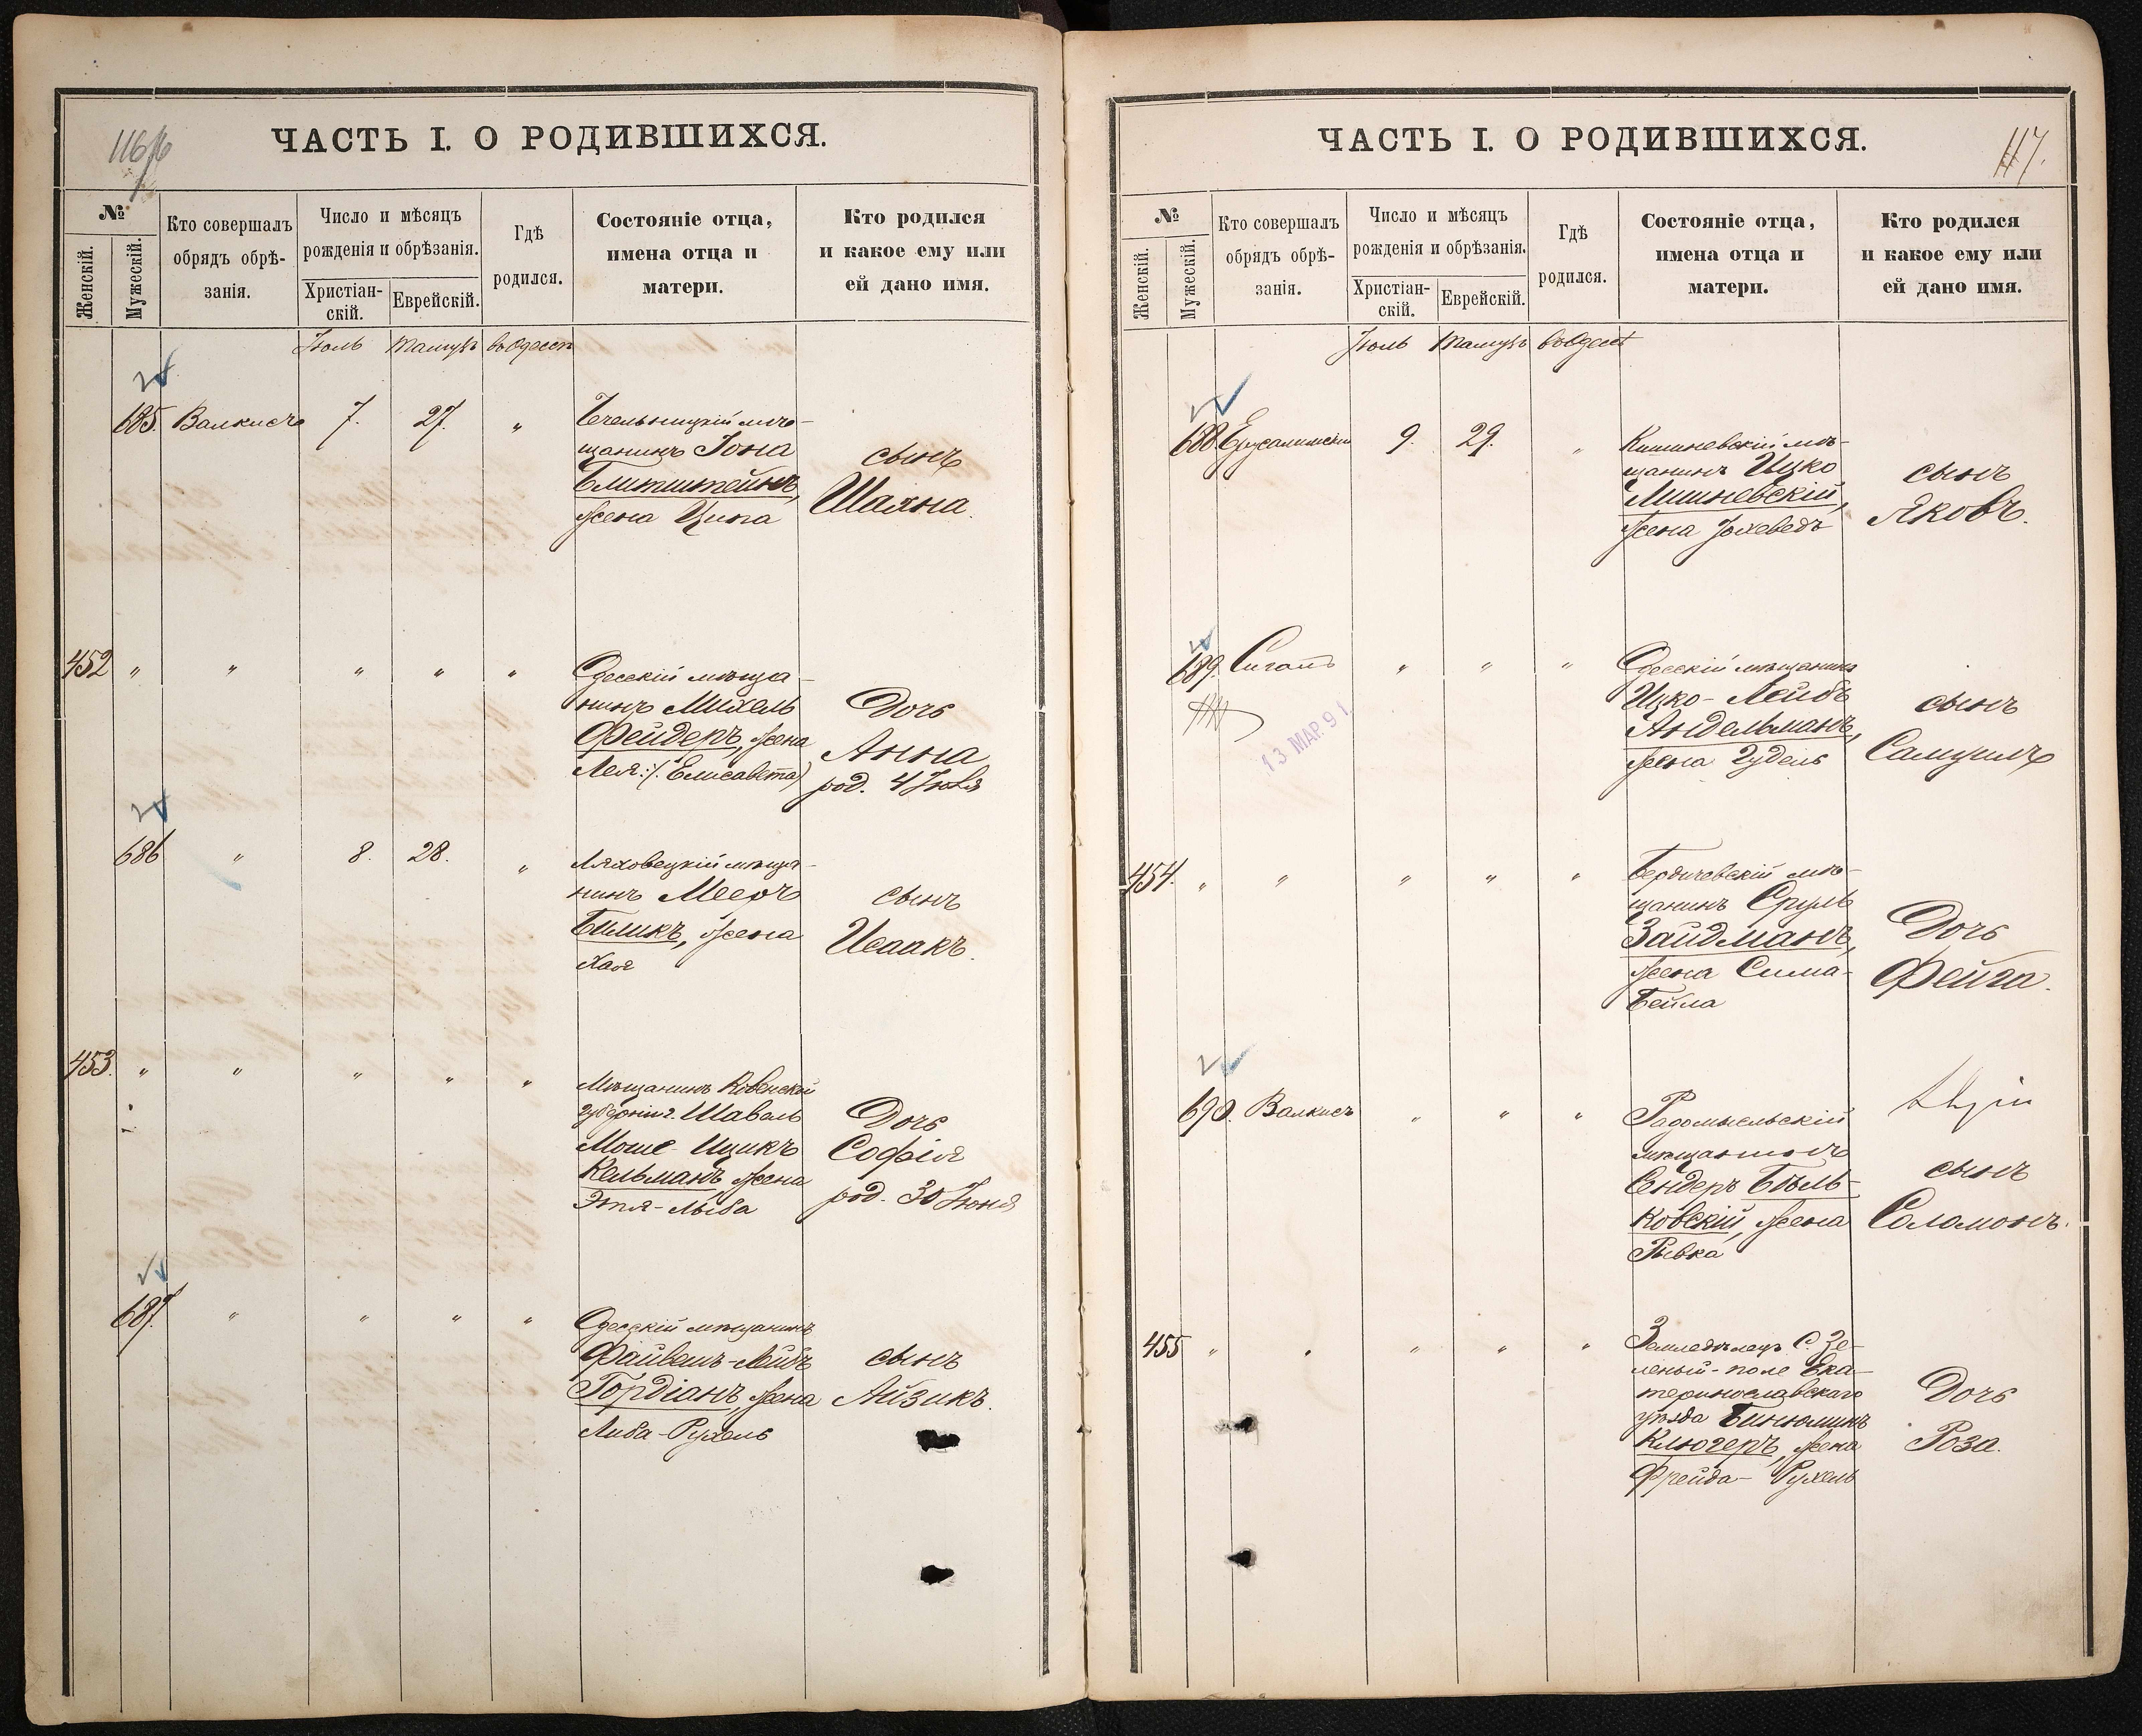 116
ЧАСТЬ I. О РОДИВШИХСЯ.
№
Женскій.
Мужескій.
Кто совершалъ
обрядъ обрѣ-
занія.
Число и мѣсяцъ
рожденія и обрѣзанія.
Христіан-
скій.
Еврейскій.
Гдѣ
родился.
Состояніе отца,
имена отца и
матери.
Кто родился
и какое ему или
ей дано имя.
Іюль Тамузъ въ Одессѣ
685. Валкисъ 7. 27. „
Чечельницкій мѣ-
щанинъ Іона
Блитштейнъ,
жена Ципа
сынъ
Шаяна.
452 „ „ „ „ „
Одесскій мѣща-
нинъ Михель
Фейдеръ, жена
Лея :/: Елисавета)
Дочь
Анна
род. 4 Іюля
686 „ 8. 28. „
Ляховецкій мѣща-
нинъ Мееръ
Биликъ, жена
Хая
сынъ
Исаакъ.
453. „ „ „ „ „
Мѣщанинъ Ковенской
губерніи г. Шавель
Моше-Ицикъ
Кельманъ жена
Этя-Лыба
Дочь
Софія
род. 30 Іюня
687. „ „ „ „
Одесскій мѣщанинъ
Файвешъ-Лейбъ
Гордіанъ, жена
Либа-Рухель
сынъ
Айзикъ.
117.
ЧАСТЬ I. О РОДИВШИХСЯ.
№
Женскій.
Мужескій.
Кто совершалъ
обрядъ обрѣ-
занія.
Число и мѣсяцъ
рожденія и обрѣзанія.
Христіан-
скій.
Еврейскій.
Гдѣ
родился.
Состояніе отца,
имена отца и
матери.
Кто родился
и какое ему или
ей дано имя.
Іюль Тамузъ въ Одессѣ
688. Ерусалимскій 9. 29. „
Кишиневскій мѣ-
щанинъ Ицко
Мишневскій,
жена Іохеведъ
сынъ
Яковъ.
689. Сигалъ „ „ „
13 МАР. 91
Одесскій мѣщанинъ
Ицко-Лейбъ
Андельманъ,
жена Гудель
сынъ
Самуилъ
454. „ „ „ „ „
Бердичевскій мѣ-
щанинъ Сруль
Зайдманъ,
жена Сима-
Бейла
Дочь
Фейга.
690. Валкисъ „ „ „
Радомысльскій
мѣщанинъ
Сендеръ Бѣль-
ковскій, жена
Ривка
сынъ
Соломонъ.
455 „ „ „ „ „
Земледѣлецъ С. Зе-
леный-поле Ека-
теринославскаго
уѣзда Бинюминъ
Клюгеръ, жена
Фрейда-Рухель
Дочь
Роза.